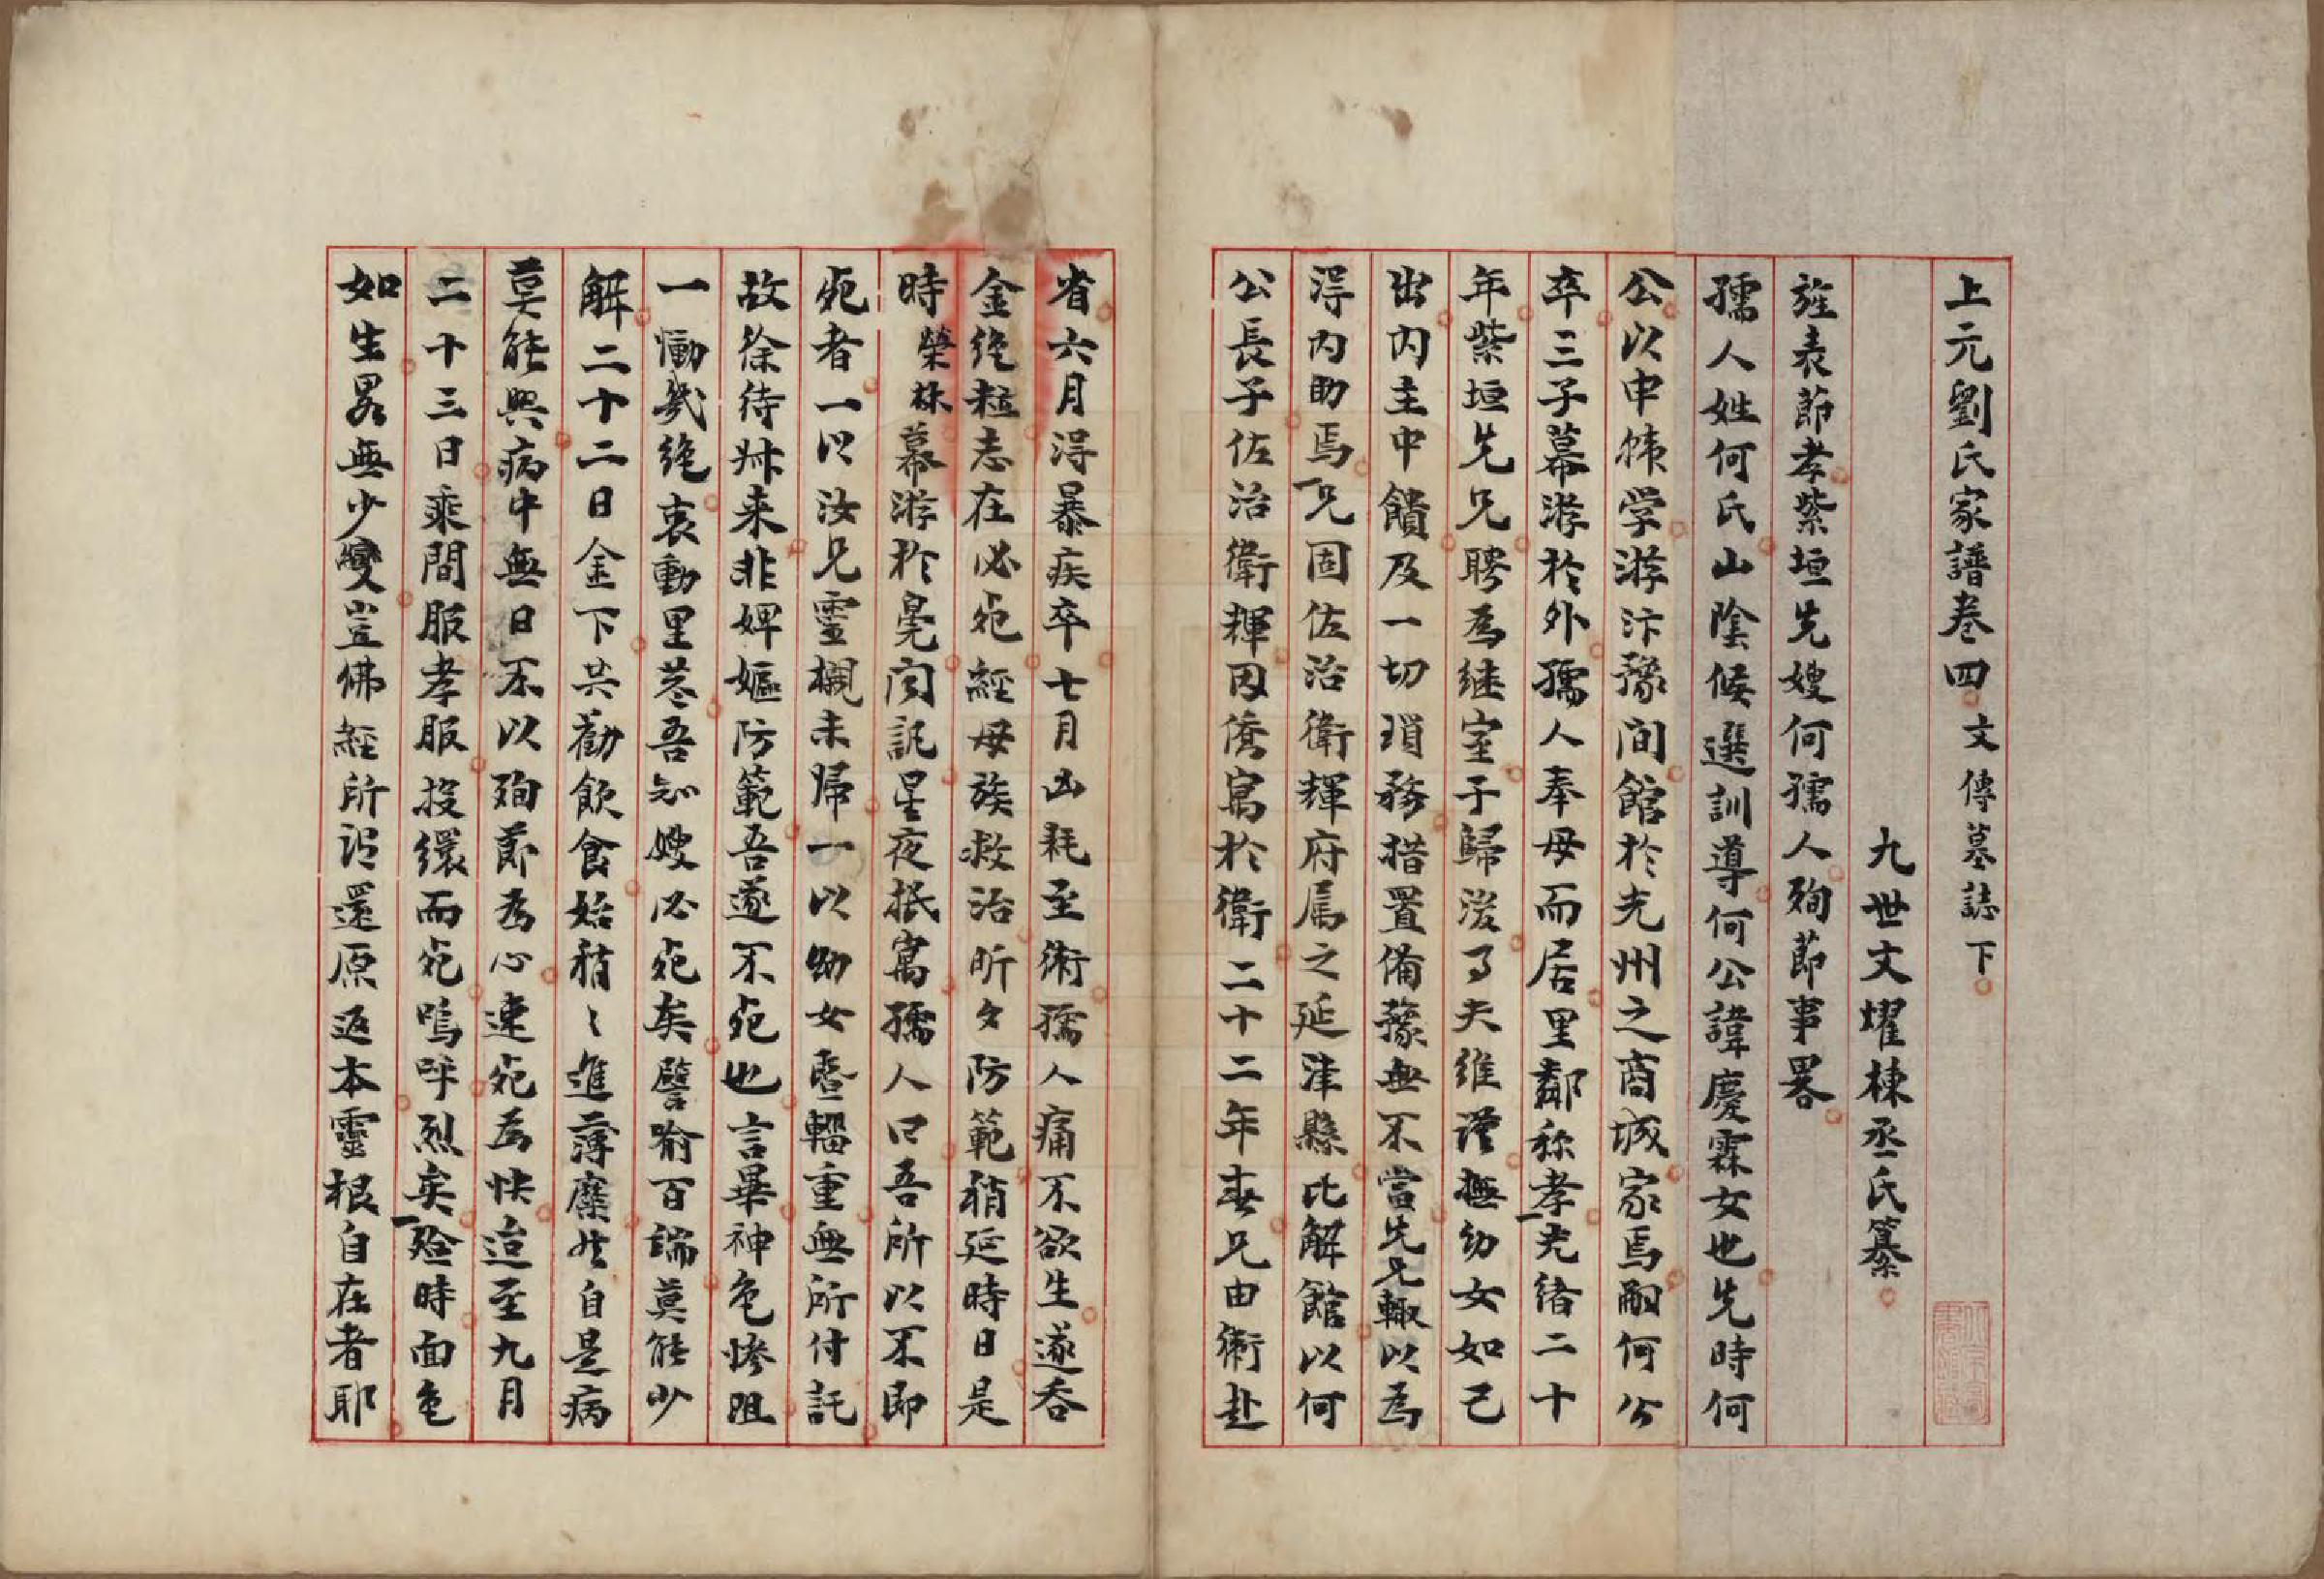 上元劉氏家譜卷四 文傳墓誌下
九世文燿棟丞氏纂
旌表節孝紫垣先嫂何孺人殉節事畧
孺人姓何氏山陰候選訓導何公諱慶霖女也先時何
公以申韩学游汴豫间館於光州之商城家焉嗣何公
卒三子幕游於外孺人奉母而居里鄰称孝光緒二十
年紫垣先兄聘為继室于歸後事夫維谨撫幼女如己
出內主中饋及一切瑣務措置備豫無不當先兄輙以為
淂内助焉兄固佐治衛輝府属之延津縣比解館以何
公長子佐治衛輝因僑寓於衛二十二年春兄由衛赴
省六月淂暴疾卒七月凶耗至衛孺人痛不欲生遂吞
金绝粒志在必死經母族救治昕夕防範稍延時日是
時榮棣幕游於亳闻訊星夜抵寓孺人曰吾所以不即
死者一以汝兄靈櫬未歸一以幼女蹔輜重無所付託
故徐待叔来非婢嫗防範吾遂不死也言畢神色慘咀
一慟幾绝哀動里巷吾知嫂必死矣譬喻百端莫能少
解二十二日金下共勸飲食始稍〻進薄糜然自是病
莫能興病中無日不以殉節為心速死為快迨至九月
二十三日乘間服孝服投繯而死嗚呼烈矣殓時面色
如生畧無少變豈佛經所谓還原返本靈根自在者耶